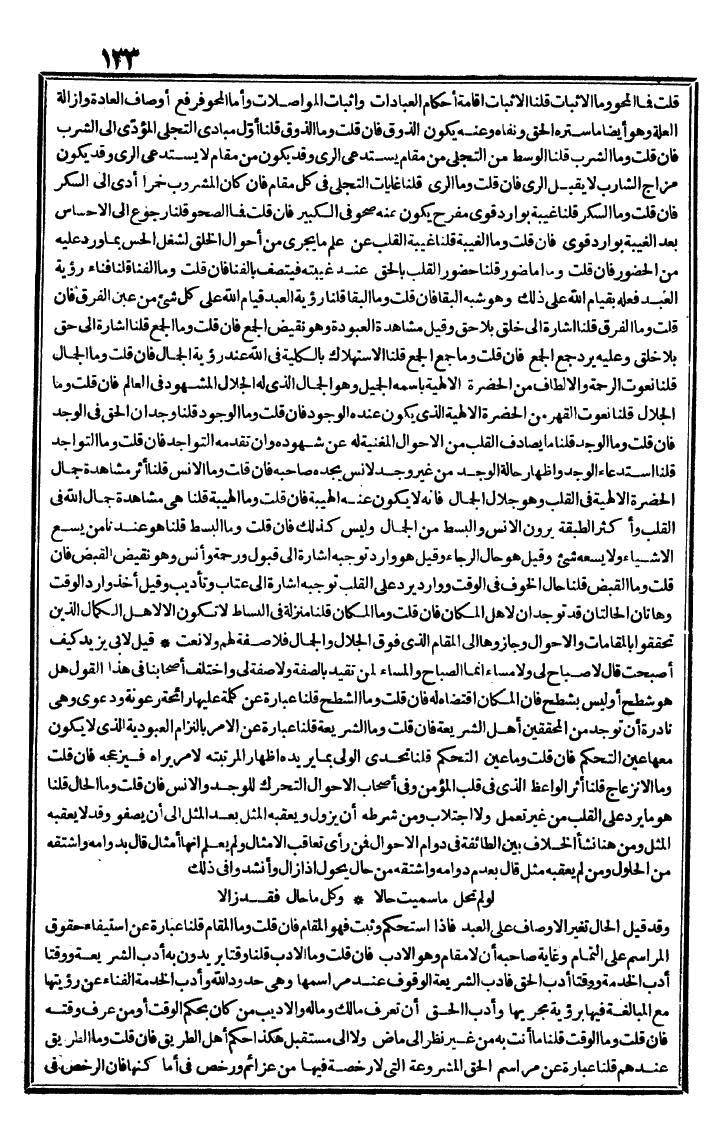 ١٣٣
قلت فما المحو وما الاثبات قلنا الاثبات اقامة أحكام العبادات واثبات المواصلات وأما المحو فرفع أوصاف العادة وازالة
العلة وهو أيضا ما ستره الحق ونفاه وعنه يكون الذوق فان قلت وما الذوق قلنا أوّل مبادى التجلى المؤدّى الى الشرب
فان قلت وما الشرب قلنا الوسط من التجلى من مقام يستدعى الرى وقد يكون من مقام لا يستدعى الرى وقد يكون
مزاج الشارب لا يقبل الرى فان قلت وما الرى قلنا غايات التجلى فى كل مقام فان كان المشروب خمرا أدى الى السكر
فان قلت وما السكر قلنا غيبة بوارد قوى مفرح يكون عنه صحو فى الكبير فان قلت فما الصحو قلنا رجوع الى الاحساس
بعد الغيبة بوارد قوى فان قلت وما الغيبة قلنا غيبة القلب عن علم ما يجرى من أحوال الخلق لشغل الحس بما ورد عليه
من الحضور فان قلت وما الحضور قلنا حضور القلب بالحق عند غيبته فيتصف بالفنا فان قلت وما الفنا قلنا فناء رؤية
العبد فعله بقيام الله على ذلك وهو شبه البقا فان قلت وما البقا قلنا رؤية العبد قيام الله على كل شئ من عين الفرق فان
قلت وما الفرق قلنا اشارة الى خلق بلا حق وقيل مشاهدة العبودة وهو نقيض الجمع فان قلت وما الجمع قلنا اشارة الى حق
بلا خلق وعليه يرد جمع الجمع فان قلت وما جمع الجمع قلنا الاستهلاك بالكلية فى الله عند رؤية الجمال فان قلت وما الجمال
قلنا نعوت الرحمة والالطاف من الحضرة الالهية باسمه الجميل وهو الجمال الذى له الجلال المشهود فى العالم فان قلت وما
الجلال قلنا نعوت القهر من الحضرة الالهية الذى يكون عنده الوجود فان قلت وما الوجود قلنا وجدان الحق فى الوجد
فان قلت وما الوجد قلنا ما يصادف القلب من الاحوال المغنية له عن شهوده وان تقدمه التواجد فان قلت وما التواجد
قلنا استدعاء الوجد واظهار حالة الوجد من غير وجد لانس يجده صاحبه فان قلت وما الانس قلنا أثر مشاهدة جمال
الحضرة الالهية فى القلب وهو جلال الجمال فانه لا يكون عنه الهيبة فان قلت وما الهيبة قلنا هى مشاهدة جمال الله فى
القلب وأكثر الطبقة يرون الانس والبسط من الجمال وليس كذلك فان قلت وما البسط قلنا هو عندنا من يسع
الاشياء ولا يسعه شئ وقيل هو حال الرجاء وقيل هو وارد توجبه اشارة الى قبول ورحمة وأنس وهو نقيض القبض فان
قلت وما القبض قلنا حال الخوف فى الوقت ووارد يرد على القلب توجبه اشارة الى عتاب وتأديب وقيل أخذ وارد الوقت
وهاتان الحالتان قد توجدان لاهل المكان فان قلت وما المكان قلنا منزلة فى البساط لا تكون الا لاهل الكمال الذين
تحققوا بالمقامات والاحوال وجازوها الى المقام الذى فوق الجلال والجمال فلا صفة لهم ولا نعت * قيل لابى يزيد كيف
أصبحت قال لا صباح لى ولا مساء انما الصباح والمساء لمن تقيد بالصفة ولا صفة لى واختلف أصحابنا فى هذا القول هل
هو شطح أو ليس بشطح فان المكان اقتضاه له فان قلت وما الشطح قلنا عبارة عن كلمة عليها رائحة رعونة ودعوى وهى
نادرة أن توجد من المحققين أهل الشريعة فان قلت وما الشريعة قلنا عبارة عن الامر بالتزام العبودية الذى لا يكون
معها عين التحكم فان قلت وما عين التحكم قلنا تحدى الولى بما يريده اظهارا لمرتبته لامر يراه فيزعجه فان قلت
وما الانزعاج قلنا أثر الواعظ الذى فى قلب المؤمن وفى أصحاب الاحوال التحرك للوجد والانس فان قلت وما الحال قلنا
هو ما يرد على القلب من غير تعمل ولا اجتلاب ومن شرطه أن يزول ويعقبه المثل بعد المثل الى أن يصفو وقد لا يعقبه
المثل ومن هنا نشأ الخلاف بين الطائفة فى دوام الاحوال فن رأى تعاقب الامثال ولم يعلم انها أمثال قال بدوامه واشتقه
من الحلول ومن لم يعقبه مثل قال بعدم دوامه واشتقه من حال يحول اذا زال وأنشدوا فى ذلك
لو لم تحل ما سميت حالا * وكل ما حال فقد زالا
وقد قيل الحال تغير الاوصاف على العبد فاذا استحكم وثبت فهو المقام فان قلت وما المقام قلنا عبارة عن استيفاء حقوق
المراسم على التمام وغاية صاحبه أن لا مقام وهو الادب فان قلت وما الادب قلنا وقتا يريدون به أدب الشريعة ووقتا
أدب الخدمة ووقتا أدب الحق فادب الشريعة الوقوف عند مراسمها وهى حدود الله وأدب الخدمة الفناء عن رؤيتها
مع المبالغة فيها برؤية مجريها وأدب الحق أن تعرف مالك وماله والاديب من كان بحكم الوقت أو من عرف وقته
فان قلت وما الوقت قلنا ما أنت به من غير نظر الى ماض ولا الى مستقبل هكذا حكم أهل الطريق فان قلت وما الطريق
عندهم قلنا عبارة عن مراسم الحق المشروعة التى لا رخصة فيها من عزائم ورخص فى أماكنها فان الرخص فى